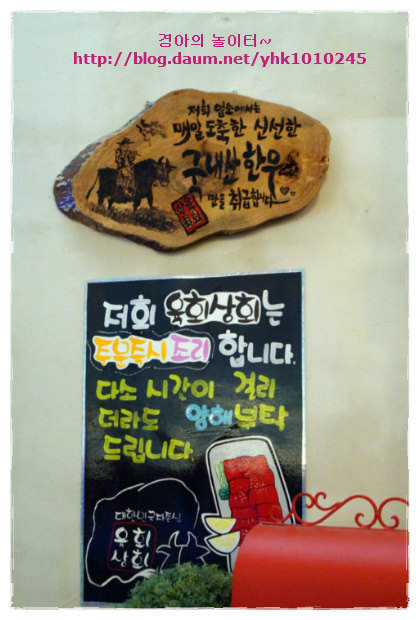 경아의 놀이터~
http://blog.daum.net/yhk1010245
저희 업소에서는
매일 도축한 신선한
국내산 한우
만을 취급합니다
저희 육회상회는
주문즉시 조리 합니다.
다소 시간이 걸리
더라도 양해부탁
드립니다.
대한민국대표음식
육회
상회